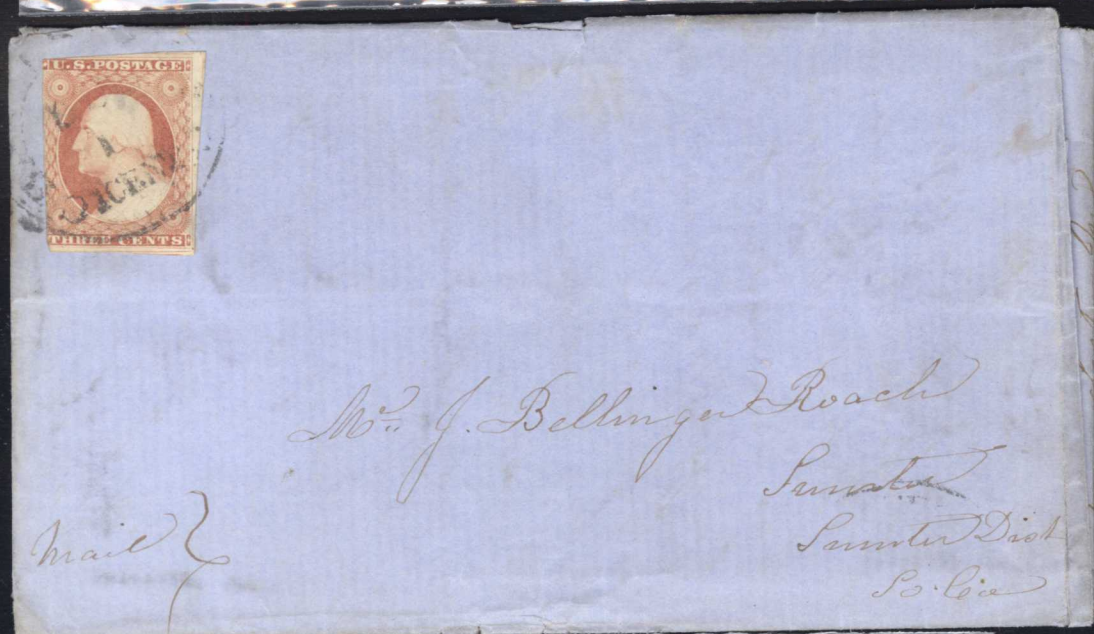 U.S.POSTAGE
THREE CENTS
Mr. J. Bellinger Roach
Sumter
Sumter Dist
So. Ca
Mail